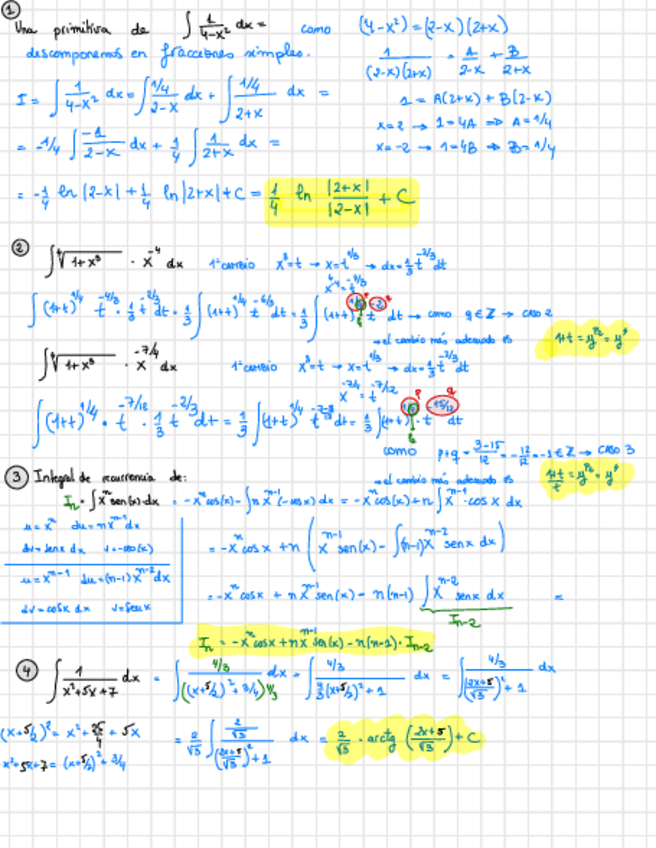 ① Una primitiva de ∫ 1/(4-x²) dx = como (4-x²) = (2-x)(2+x)
descomponemos en fracciones simples. 1/((2-x)(2+x)) = A/(2-x) + B/(2+x)
I = ∫ 1/(4-x²) dx = ∫ (1/4)/(2-x) dx + ∫ (1/4)/(2+x) dx = 1 = A(2+x) + B(2-x)
x=2 → 1=4A ⇒ A=1/4
= -1/4 ∫ -1/(2-x) dx + 1/4 ∫ 1/(2+x) dx = x=-2 → 1=4B ⇒ B=1/4
= -1/4 ln |2-x| + 1/4 ln |2+x| + C = 1/4 ln |2+x|/|2-x| + C
② ∫ ⁴√(1+x³) · x⁻⁴ dx 1ᵉʳ cambio x³=t → x=t^(1/3) → dx = 1/3 t^(-2/3) dt
x⁻⁴ = t^(-4/3)
∫ (1+t)^(1/4) t^(-4/3) · 1/3 t^(-2/3) dt = 1/3 ∫ (1+t)^(1/4) t^(-6/3) dt = 1/3 ∫ (1+t)^(1/4) t^(-2) dt → como q∈Z → caso 2
→ el cambio más adecuado es 1+t = y^(p₂) = y⁴
∫ ⁴√(1+x³) · x^(-7/4) dx 1ᵉʳ cambio x³=t → x=t^(1/3) → dx = 1/3 t^(-2/3) dt
x^(-7/4) = t^(-7/12)
∫ (1+t)^(1/4) · t^(-7/12) · 1/3 t^(-2/3) dt = 1/3 ∫ (1+t)^(1/4) t^(-7-8/12) dt = 1/3 ∫ (1+t)^(1/4) · t^(-15/12) dt
como p+q = (3-15)/12 = -12/12 = -1 ∈ Z → caso 3
③ Integral de recurrencia de: → el cambio más adecuado es (1+t)/t = y^(p₂) = y⁴
Iₙ = ∫ xⁿ sen(x) dx = -xⁿ cos(x) - ∫ n xⁿ⁻¹ (-cos x) dx = -xⁿ cos(x) + n ∫ xⁿ⁻¹ · cos x dx
u = xⁿ du = n xⁿ⁻¹ dx
dv = sen x dx v = -cos(x) = -xⁿ cos x + n ( xⁿ⁻¹ sen(x) - ∫ (n-1) xⁿ⁻² sen x dx )
u = xⁿ⁻¹ du = (n-1) xⁿ⁻² dx
dv = cos x dx v = sen x = -xⁿ cos x + n xⁿ⁻¹ sen(x) - n(n-1) ∫ xⁿ⁻² sen x dx =
Iₙ₋₂
Iₙ = -xⁿ cos x + n xⁿ⁻¹ sen(x) - n(n-1) · Iₙ₋₂
④ ∫ 1/(x²+5x+7) dx = ∫ (4/3)/(((x+5/2)²+3/4) 4/3) dx = ∫ (4/3)/(4/3 (x+5/2)² + 1) dx = ∫ (4/3)/(((2x+5)/√3)² + 1) dx
(x+5/2)² = x² + 25/4 + 5x = 2/√3 ∫ (2/√3)/(((2x+5)/√3)² + 1) dx = 2/√3 · arctg ((2x+5)/√3) + C
x²+5x+7 = (x+5/2)² + 3/4